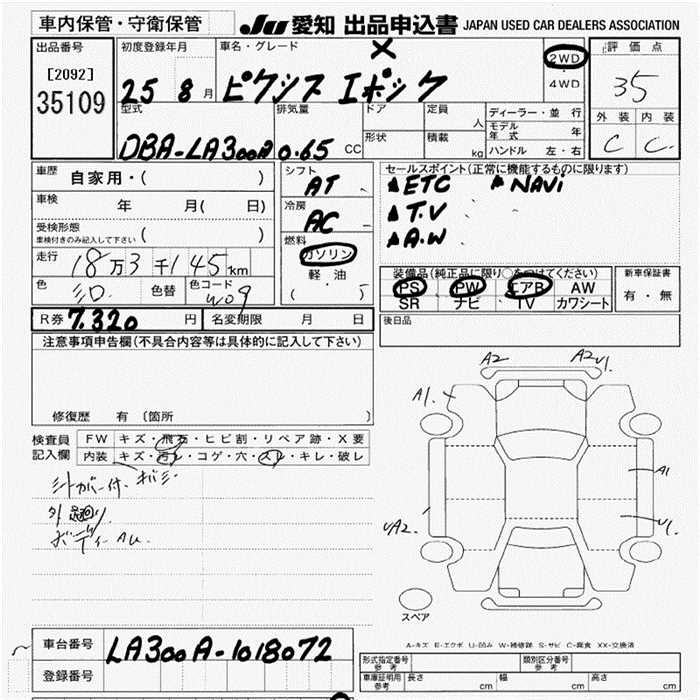 車内保管・守衛保管 JU 愛知 出品申込書 JAPAN USED CAR DEALERS ASSOCIATION
出品番号
[2092]
35109
初度登録年月
25 8 月
車名・グレード
ピクシス エポック X
2WD
・
4WD
評価点
35
外装 内装
C C
型式
DBA-LA300A
排気量
0.65 CC
ドア
形状
定員 人
積載 kg
ディーラー・並行
モデル年式 年
ハンドル 左・右
車歴 自家用・( )
車検 年 月( 日)
受検形態
車検付きのみ記入して下さい ( )
走行 18万3千145km
色 シロ 色替 色コード W09
シフト AT
冷房 AC
燃料
ガソリン
軽油
( ・ )
セールスポイント(正常に機能するものに限ります)
▲ETC ▲NAVi
▲T.V
▲A.W
装備品(純正品に限り○をつけてください)
PS PW エアB AW
SR ナビ TV カワシート
新車保証書
有・無
R券 7.320 円 名変期限 月 日
後日品
注意事項申告欄(不具合内容等は具体的に記入して下さい)
修復歴 有 〔箇所 〕
検査員記入欄
FW キズ・飛石・ヒビ割・リペア跡・X要
内装 キズ・汚レ・コゲ・穴・スレ・キレ・破レ
シートカバー付
ボディー AU
A2 A2 U1
A1.
A1
UA2.
U1.
スペア
A-キズ E-エクボ U-凹み W-補修跡 S-サビ C-腐食 XX-交換済
車台番号 LA300A-1018072
登録番号
形式指定番号 参考
類別区分番号 参考
車庫証明用 参考 長さ cm 幅 cm 高さ cm